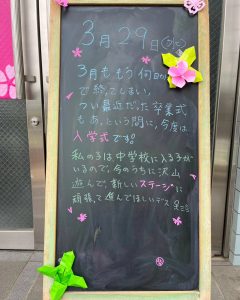 3月29日
3月ももう何日か
で終ってしまい、
つい最近だった卒業式
もあっという間に、今度は
入学式です。
私の子は中学校に入る子が
いるので、今のうちに沢山
遊んで、新しいステージに
頑張って進んでほしいデス